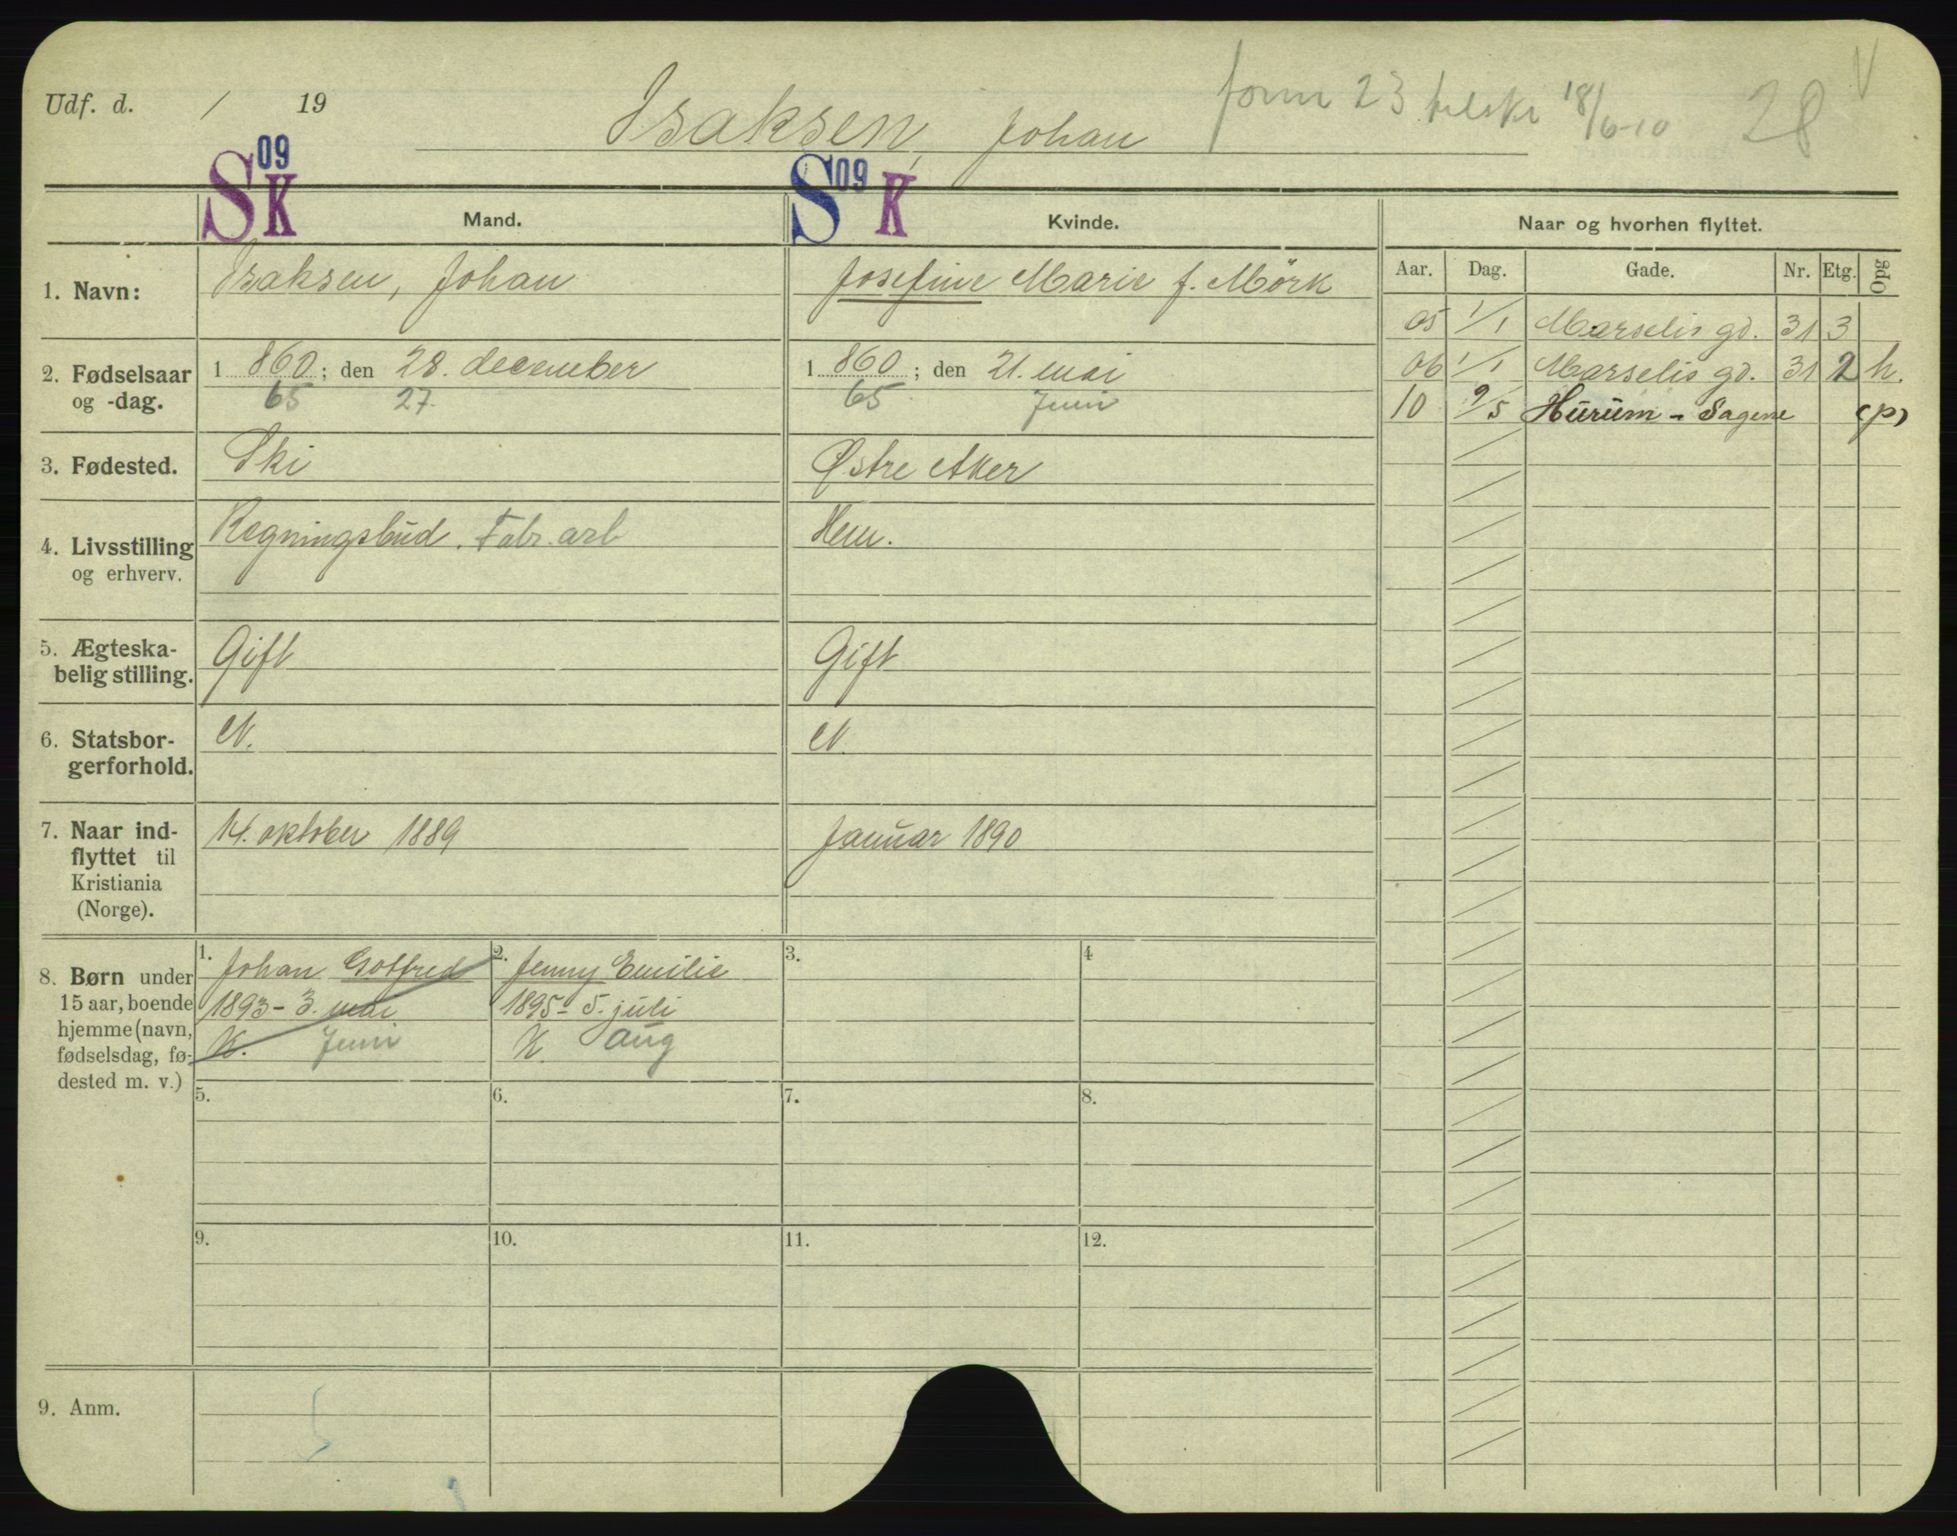 Udf. d. / 19
Isaksen, Johan
form 23 tilski 18/6-10 28 V
S 09 K S 09 K
Mand. Kvinde. Naar og hvorhen flyttet.
Aar. Dag. Gade. Nr. Etg. Opg
1. Navn: Isaksen, Johan Josefine Marie f. Mörk
05 1/1 Marselis gd. 31 3
2. Fødselsaar og -dag. 1 860; den 28. december 1 860; den 21. mai
65 27. 65 Juni
06 1/1 Marselis gd. 31 2 h.
10 9/5 Hurum - Sagene (p)
3. Fødested. Ski Østre Aker
4. Livsstilling og erhverv. Regningsbud. Fabr. arb Hem.
5. Ægteska-
belig stilling. Gift Gift
6. Statsbor-
gerforhold. N. N.
7. Naar ind-
flyttet til
Kristiania
(Norge). 14. oktober 1889 Januar 1890
8. Børn under
15 aar, boende
hjemme (navn,
fødselsdag, fø-
dested m. v.)
1. Johan Gotfred
1893 - 3. mai
K. Juni
2. Jenny Emilie
1895 - 5. juli
K. Aug
3. 4
5. 6. 7. 8.
9. 10. 11. 12.
9. Anm.